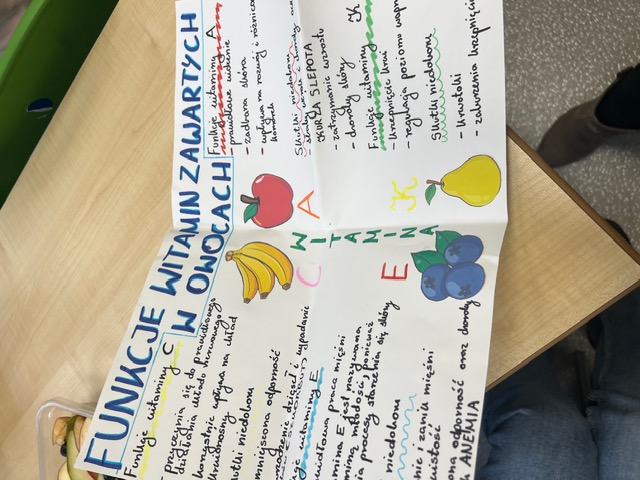 FUNKCJE WITAMIN ZAWARTYCH
W OWOCACH
Funkcje witaminy C
- przyczynia się do prawidłowego
działania układu nerwowego
korzystnie wpływa na układ
krwionośny
skutki niedoboru
zmniejszona odporność
dziąseł i wypadanie
witaminy E
praca mięśni
witamina E jest nazywana
witaminą młodości, ponieważ
procesy starzenia się skóry
niedoboru
zanik mięśni
odporność oraz choroby
ANEMIA
WITAMINA
C
A
E
K
Funkcje witaminy A
- prawidłowe widzenie
- zadbana skóra
- wpływa na rozwój i różnicowanie
komórek
Skutki niedoboru
KURZA ŚLEPOTA
- zatrzymanie wzrostu
- choroby skóry
Funkcje witaminy K
- krzepnięcie krwi
- reguluje poziomu wapnia
Skutki niedoboru
- krwotoki
- zaburzenia krzepnięcia